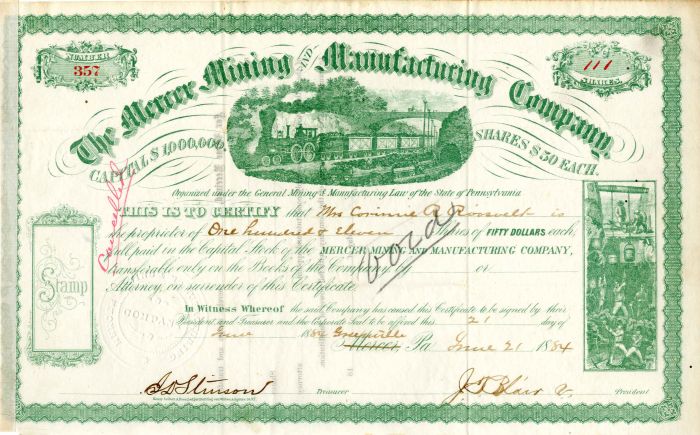 NUMBER
357
111
SHARES
The Mercer Mining AND Manufacturing Company.
CAPITAL $1,000,000,
SHARES $50 EACH.
Organized under the General Mining & Manufacturing Law of the State of Pennsylvania
THIS IS TO CERTIFY that Mrs Corinne R. Roosvelt is
the proprietor of One hundred & Eleven Shares of FIFTY DOLLARS each,
full paid in the Capital Stock of the MERCER MINING AND MANUFACTURING COMPANY,
transferable only on the Books of the Company, by or
Attorney, on surrender of this Certificate.
Cancelled
Stamp
In Witness Whereof the said Company has caused this Certificate to be signed by their
President and Treasurer and the Corporate Seal to be affixed this 21 day of
June 1884 Greenville Mercer, Pa June 21 1884
Treasurer
J. T. Blair
President